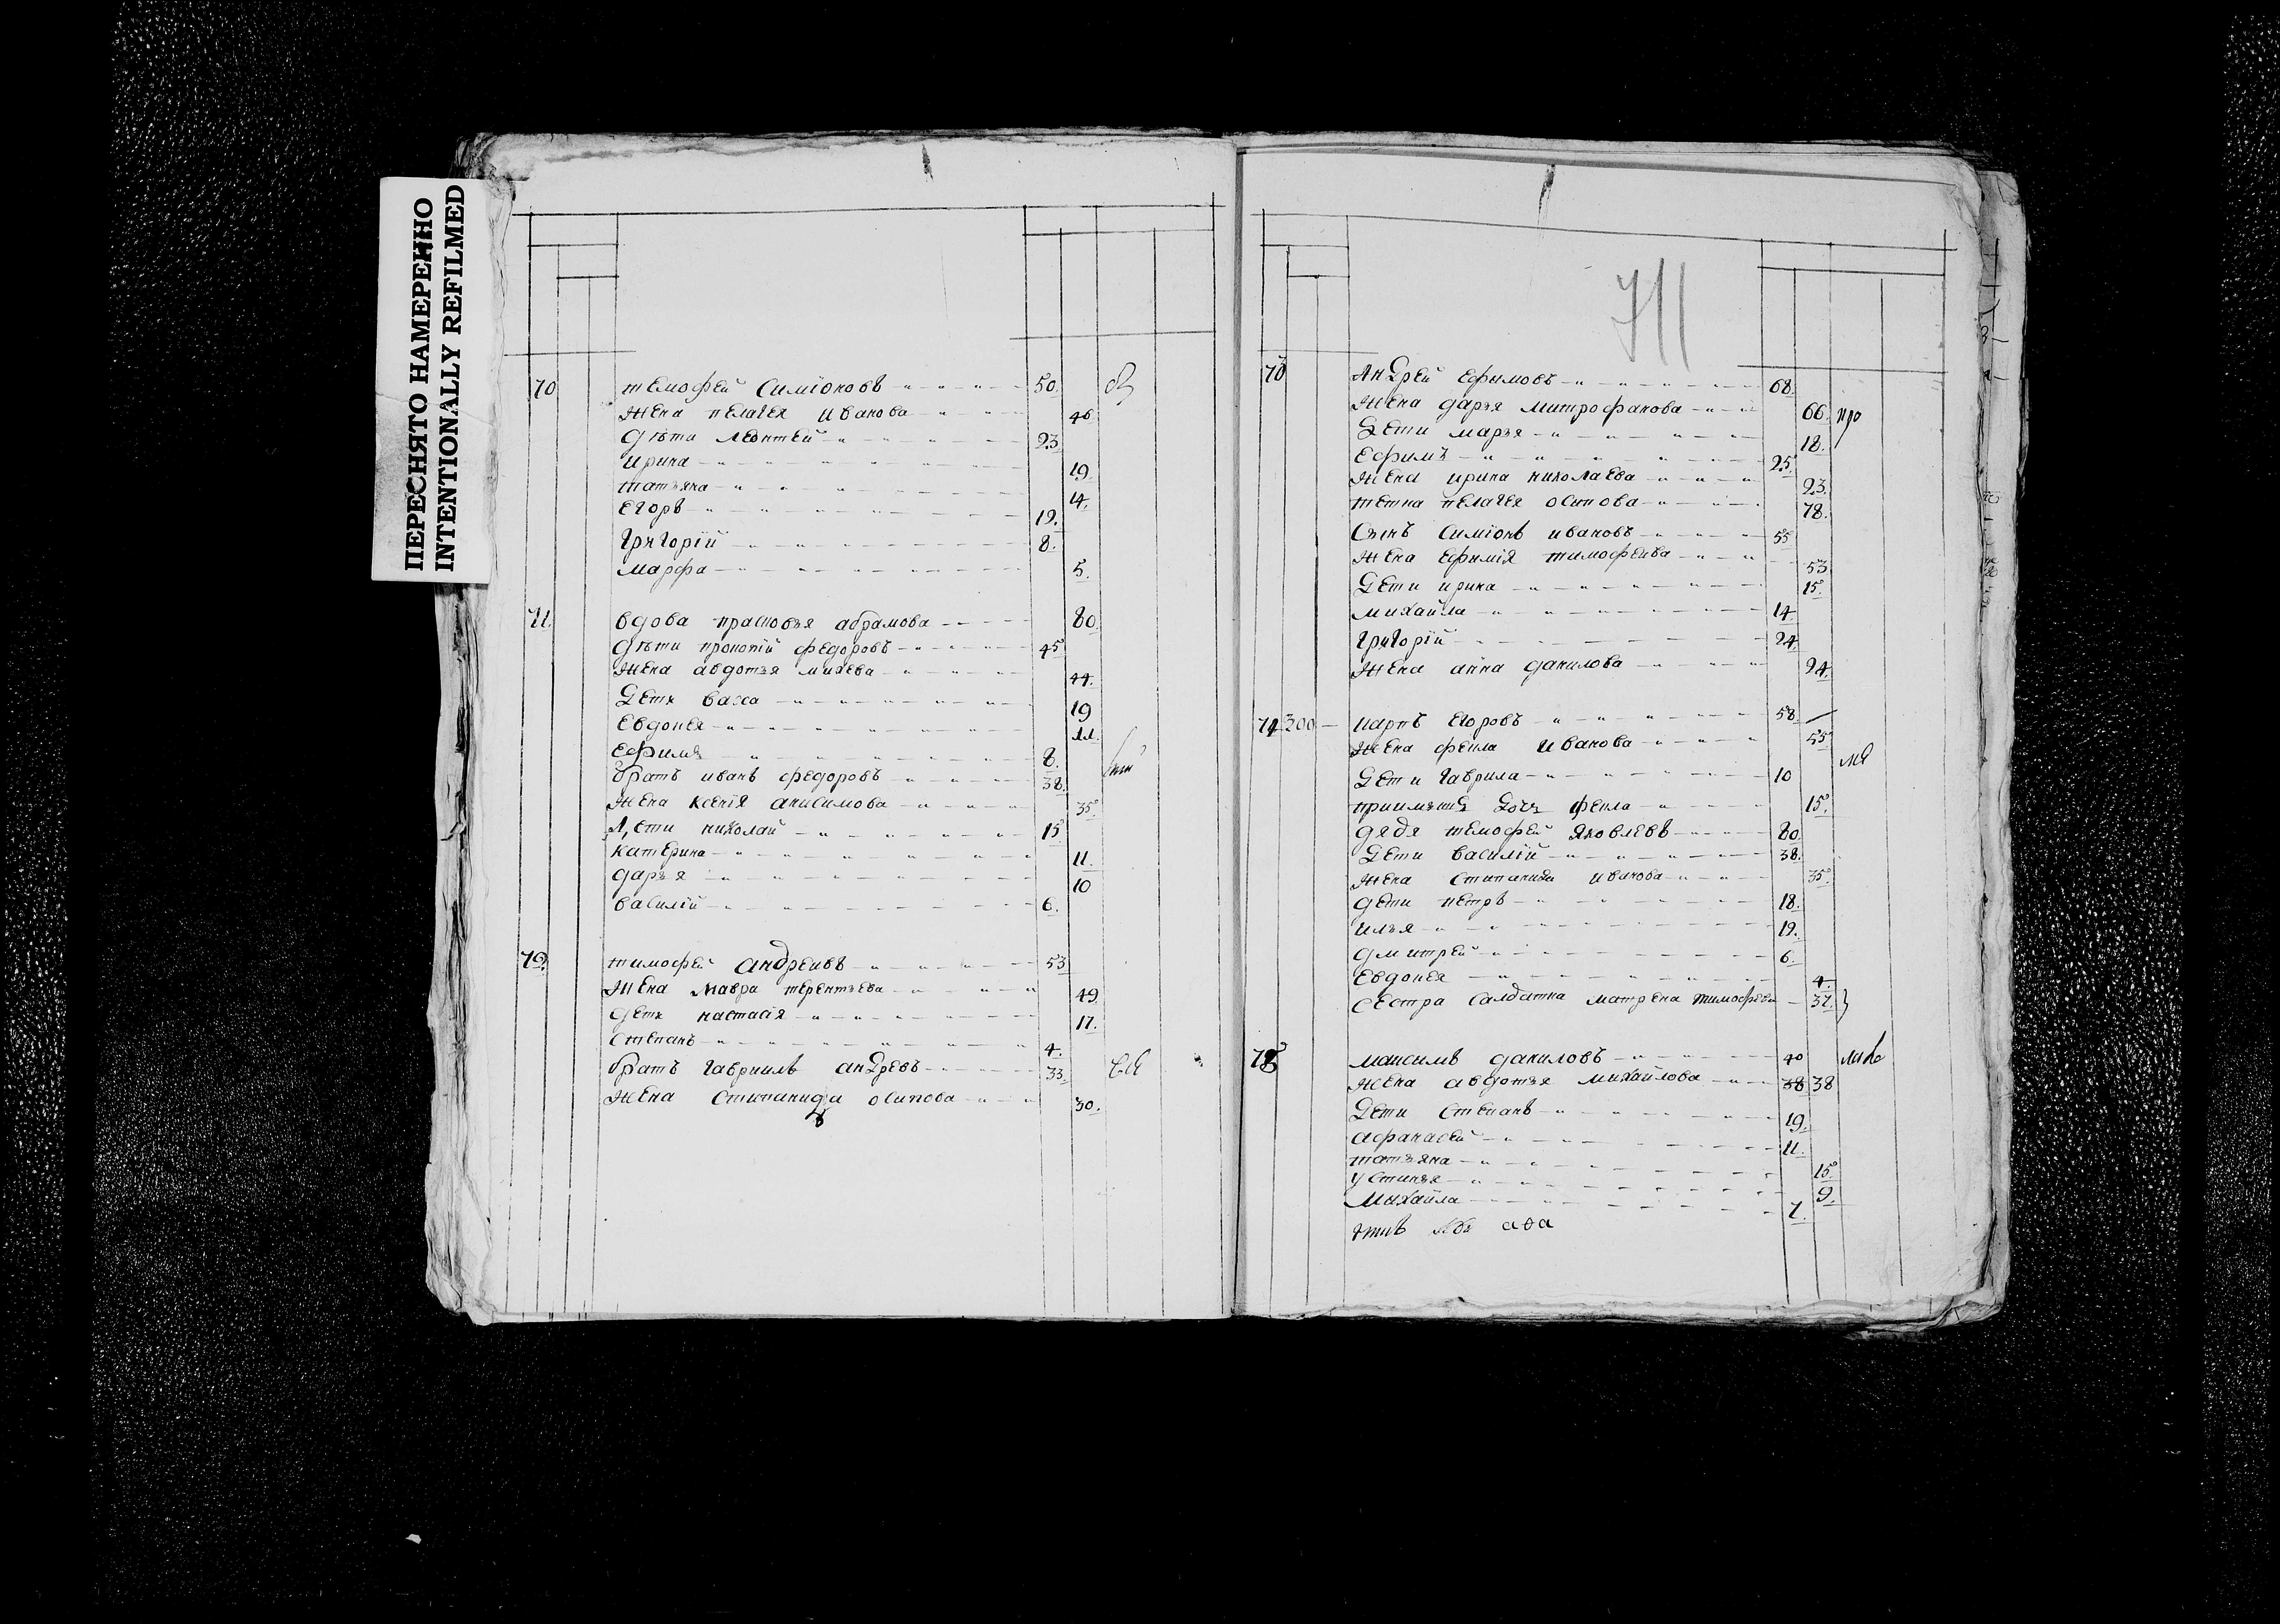 ПЕРЕСНЯТО НАМЕРЕННО
INTENTIONALLY REFILMED
70 темофей Симіоновъ 50.
жена пелагея Иванова 46
дѣти леонтей 23
ирина 19
татьяна 14.
Егоръ 12.
Григорій 8.
марфа 5.
71. вдова прасковья абрамова 80.
дѣти прокопій федоровъ 45
жена авдотья михева 44.
Дети васса 19
Евдокея 11.
Ефимъ 8.
братъ иванъ федоровъ 38.
жена ксенія анисимова 35
Дети николай 15
катерина 11.
дарья 10
василій 6.
72. тимофей андреивъ 53
жена мавра терентьева 49
дети настасія 17.
степанъ 4.
братъ гавриилъ андревъ 33
жена степанида осипова 30.
711
73 Андрей ефимовъ 68.
жена дарья митрофанова 66.
Дети марья 18.
Ефимъ 25.
жена ирина николаева 23.
тетка пелагея осипова 78.
Сынъ симіонъ ивановъ 55
жена ефимія тимофеива 53
Дети ирина 15.
михайла 14
григорій 24
жена анна данилова 24.
74 300 карпъ егоровъ 58.
жена фекла иванова 55
Дети гаврила 10
дочь фекла 15.
дядя темофей яковлевъ 80.
Дети василій 38.
жена степанида иванова 35
дети петръ 18.
илья 12.
дмитрей 6.
Евдокея 4.
сестра салдатка матрена тимофеева 37.
75 максимъ даниловъ 40
жена авдотья михайлова 38 38
Дети степанъ 19.
афанасей 11.
татьяна 15.
устинья 9.
михайла 7.